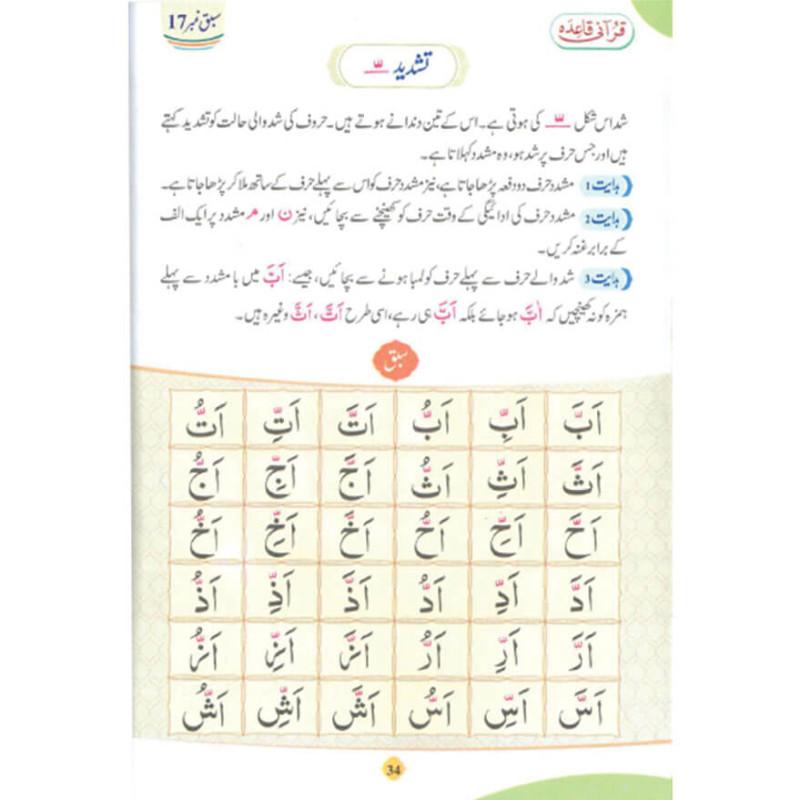 قرآنی قاعدہ
سبق نمبر 17
تشدید ـّـ
شد اس شکل ـّـ کی ہوتی ہے۔ اس کے تین دندانے ہوتے ہیں۔ حروف کی شد والی حالت کو تشدید کہتے
ہیں اور جس حرف پر شد ہو، وہ مشدد کہلاتا ہے۔
ہدایت 1: مشدد حرف دو دفعہ پڑھا جاتا ہے، نیز مشدد حرف کو اس سے پہلے حرف کے ساتھ ملا کر پڑھا جاتا ہے۔
ہدایت 2: مشدد حرف کی ادائیگی کے وقت حرف کو کھینچنے سے بچائیں، نیز ن اور م مشدد پر ایک الف
کے برابر غنہ کریں۔
ہدایت 3: شد والے حرف سے پہلے حرف کو لمبا ہونے سے بچائیں، جیسے: اَبَّ میں با مشدد سے پہلے
ہمزہ کو نہ کھینچیں کہ اٰبَّ ہو جائے بلکہ اَبَّ ہی رہے، اسی طرح اَتَّ، اَثَّ وغیرہ ہیں۔
سبق
اَبَّ اَبِّ اَبُّ اَتَّ اَتِّ اَتُّ
اَثَّ اَثِّ اَثُّ اَجَّ اَجِّ اَجُّ
اَحَّ اَحِّ اَحُّ اَخَّ اَخِّ اَخُّ
اَدَّ اَدِّ اَدُّ اَذَّ اَذِّ اَذُّ
اَرَّ اَرِّ اَرُّ اَزَّ اَزِّ اَزُّ
اَسَّ اَسِّ اَسُّ اَشَّ اَشِّ اَشُّ
34